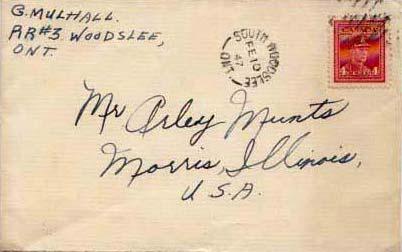 G. MULHALL.
RR#3 WOODSLEE,
ONT.
SOUTH WOODSLEE
FE 10
47
ONT
CANADA
4 4
Mr Arley Munts
Morris, Illinois,
U.S.A.